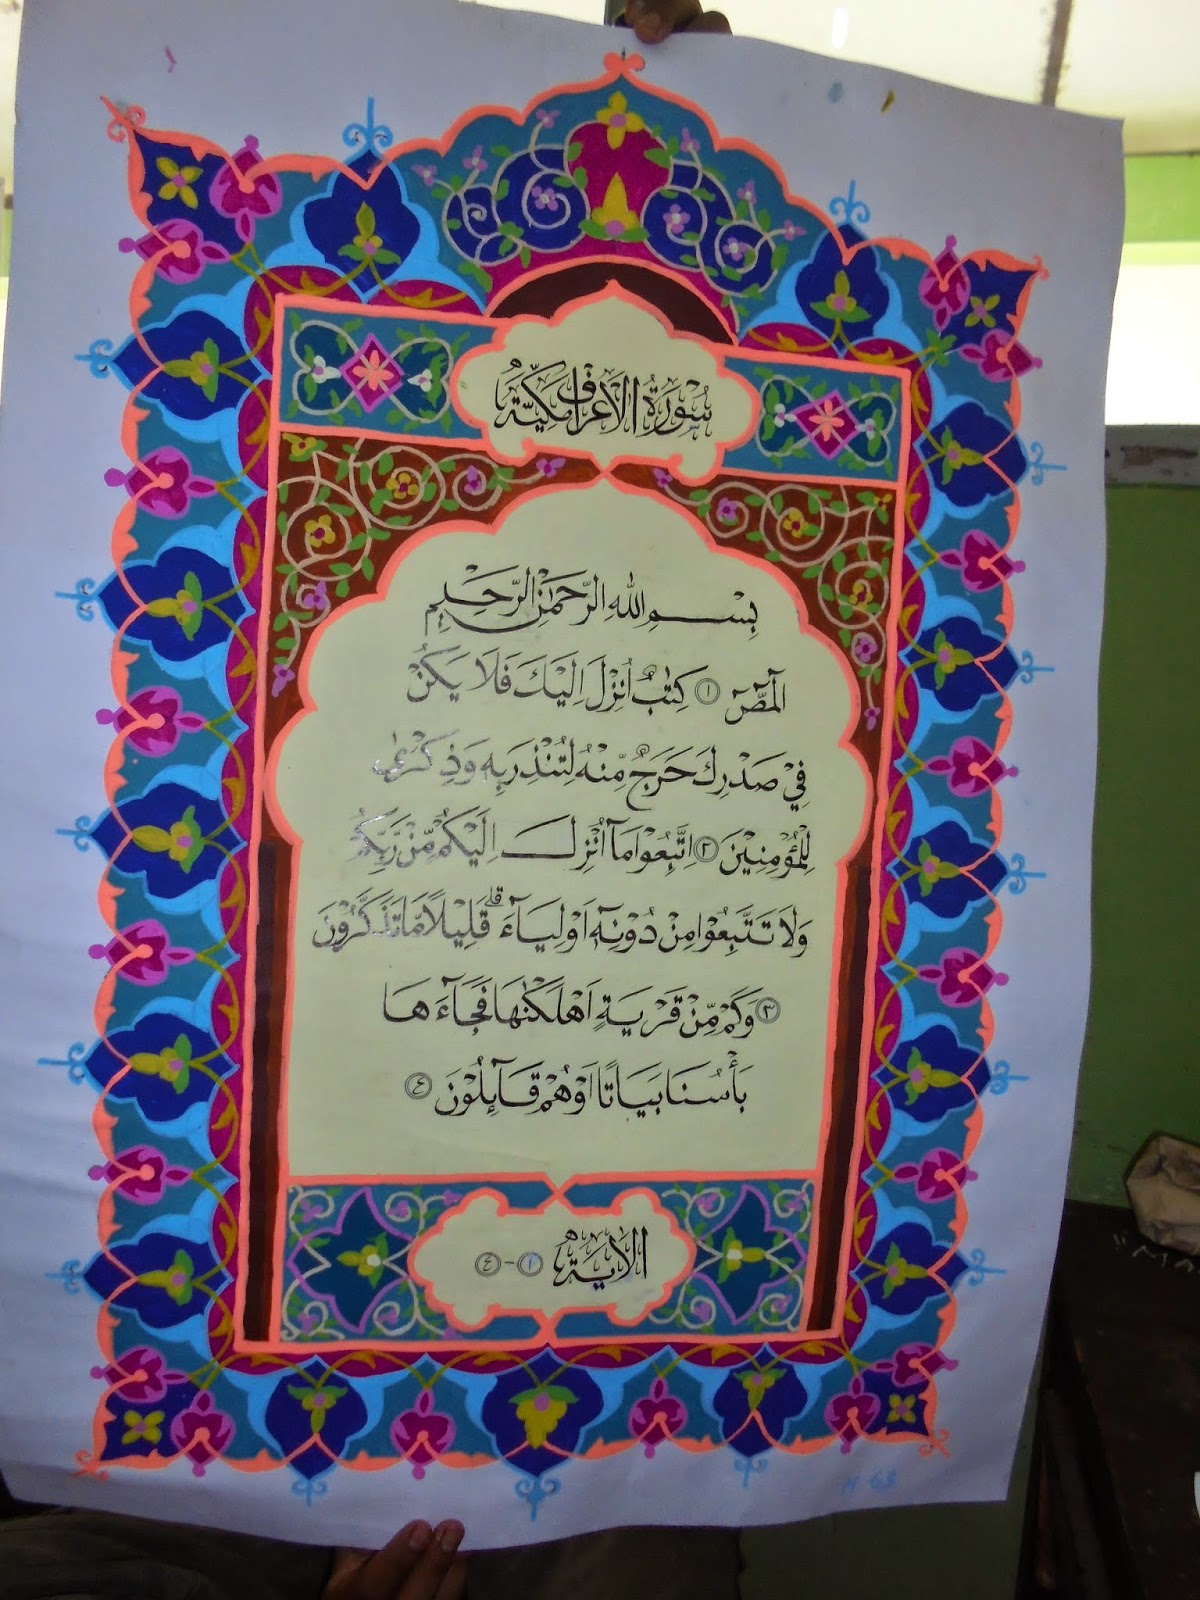 سُوْرَةُ الْاَعْرَافِ مَكِّيَّةٌ
بِسْمِ اللّٰهِ الرَّحْمٰنِ الرَّحِيْمِ
الۤمّۤصۤ ۝١ كِتٰبٌ اُنْزِلَ اِلَيْكَ فَلَا يَكُنْ
فِيْ صَدْرِكَ حَرَجٌ مِّنْهُ لِتُنْذِرَ بِهٖ وَذِكْرٰى
لِلْمُؤْمِنِيْنَ ۝٢ اِتَّبِعُوْا مَآ اُنْزِلَ اِلَيْكُمْ مِّنْ رَّبِّكُمْ
وَلَا تَتَّبِعُوْا مِنْ دُوْنِهٖٓ اَوْلِيَاۤءَۗ قَلِيْلًا مَّا تَذَكَّرُوْنَ
۝٣ وَكَمْ مِّنْ قَرْيَةٍ اَهْلَكْنٰهَا فَجَاۤءَهَا
بَأْسُنَا بَيَاتًا اَوْ هُمْ قَاۤىِٕلُوْنَ ۝٤
الْاٰيَةُ ١-٤